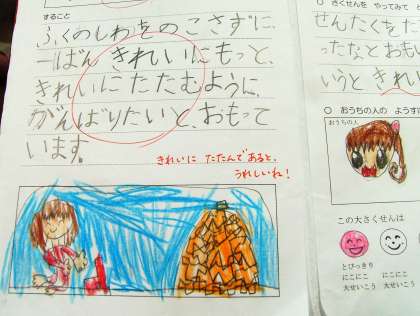 すること
ふくのしわをのこさずに、
一ばんきれいにもっと、
きれいにたたむように、
がんばりたいと、おもって
います。
きれいに たたんであると、
うれしいね！
○ さくせんを やってみて
せんたくをた
ったなとおも
いうと きれ
○ おうちの人の ようす
おうちの人
この大さくせんは
とびっきり
にこにこ にこにこ
大せいこう 大せいこう